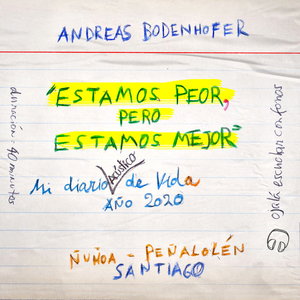 ANDREAS BODENHOFER
"ESTAMOS PEOR,
PERO
ESTAMOS MEJOR"
Mi diario Acústico de Vida
AÑO 2020
ÑUÑOA - PEÑALOLÉN
SANTIAGO
duración 90 minutos
ojalá escuchar con fonos